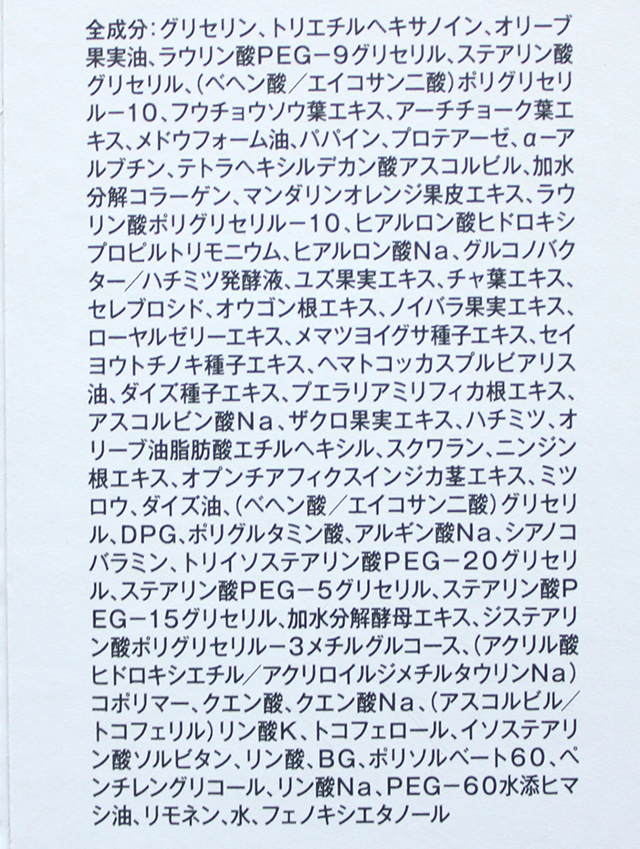 全成分：グリセリン、トリエチルヘキサノイン、オリーブ
果実油、ラウリン酸PEG－9グリセリル、ステアリン酸
グリセリル、（ベヘン酸／エイコサン二酸）ポリグリセリ
ル－10、フウチョウソウ葉エキス、アーチチョーク葉エ
キス、メドウフォーム油、パパイン、プロテアーゼ、α－ア
ルブチン、テトラヘキシルデカン酸アスコルビル、加水
分解コラーゲン、マンダリンオレンジ果皮エキス、ラウ
リン酸ポリグリセリル－10、ヒアルロン酸ヒドロキシ
プロピルトリモニウム、ヒアルロン酸Na、グルコノバク
ター／ハチミツ発酵液、ユズ果実エキス、チャ葉エキス、
セレブロシド、オウゴン根エキス、ノイバラ果実エキス、
ローヤルゼリーエキス、メマツヨイグサ種子エキス、セイ
ヨウトチノキ種子エキス、ヘマトコッカスプルビアリス
油、ダイズ種子エキス、プエラリアミリフィカ根エキス、
アスコルビン酸Na、ザクロ果実エキス、ハチミツ、オ
リーブ油脂肪酸エチルヘキシル、スクワラン、ニンジン
根エキス、オプンチアフィクスインジカ茎エキス、ミツ
ロウ、ダイズ油、（ベヘン酸／エイコサン二酸）グリセリ
ル、DPG、ポリグルタミン酸、アルギン酸Na、シアノコ
バラミン、トリイソステアリン酸PEG－20グリセリ
ル、ステアリン酸PEG－5グリセリル、ステアリン酸P
EG－15グリセリル、加水分解酵母エキス、ジステアリ
ン酸ポリグリセリル－3メチルグルコース、（アクリル酸
ヒドロキシエチル／アクリロイルジメチルタウリンNa）
コポリマー、クエン酸、クエン酸Na、（アスコルビル／
トコフェリル）リン酸K、トコフェロール、イソステアリ
ン酸ソルビタン、リン酸、BG、ポリソルベート60、ペ
ンチレングリコール、リン酸Na、PEG－60水添ヒマ
シ油、リモネン、水、フェノキシエタノール